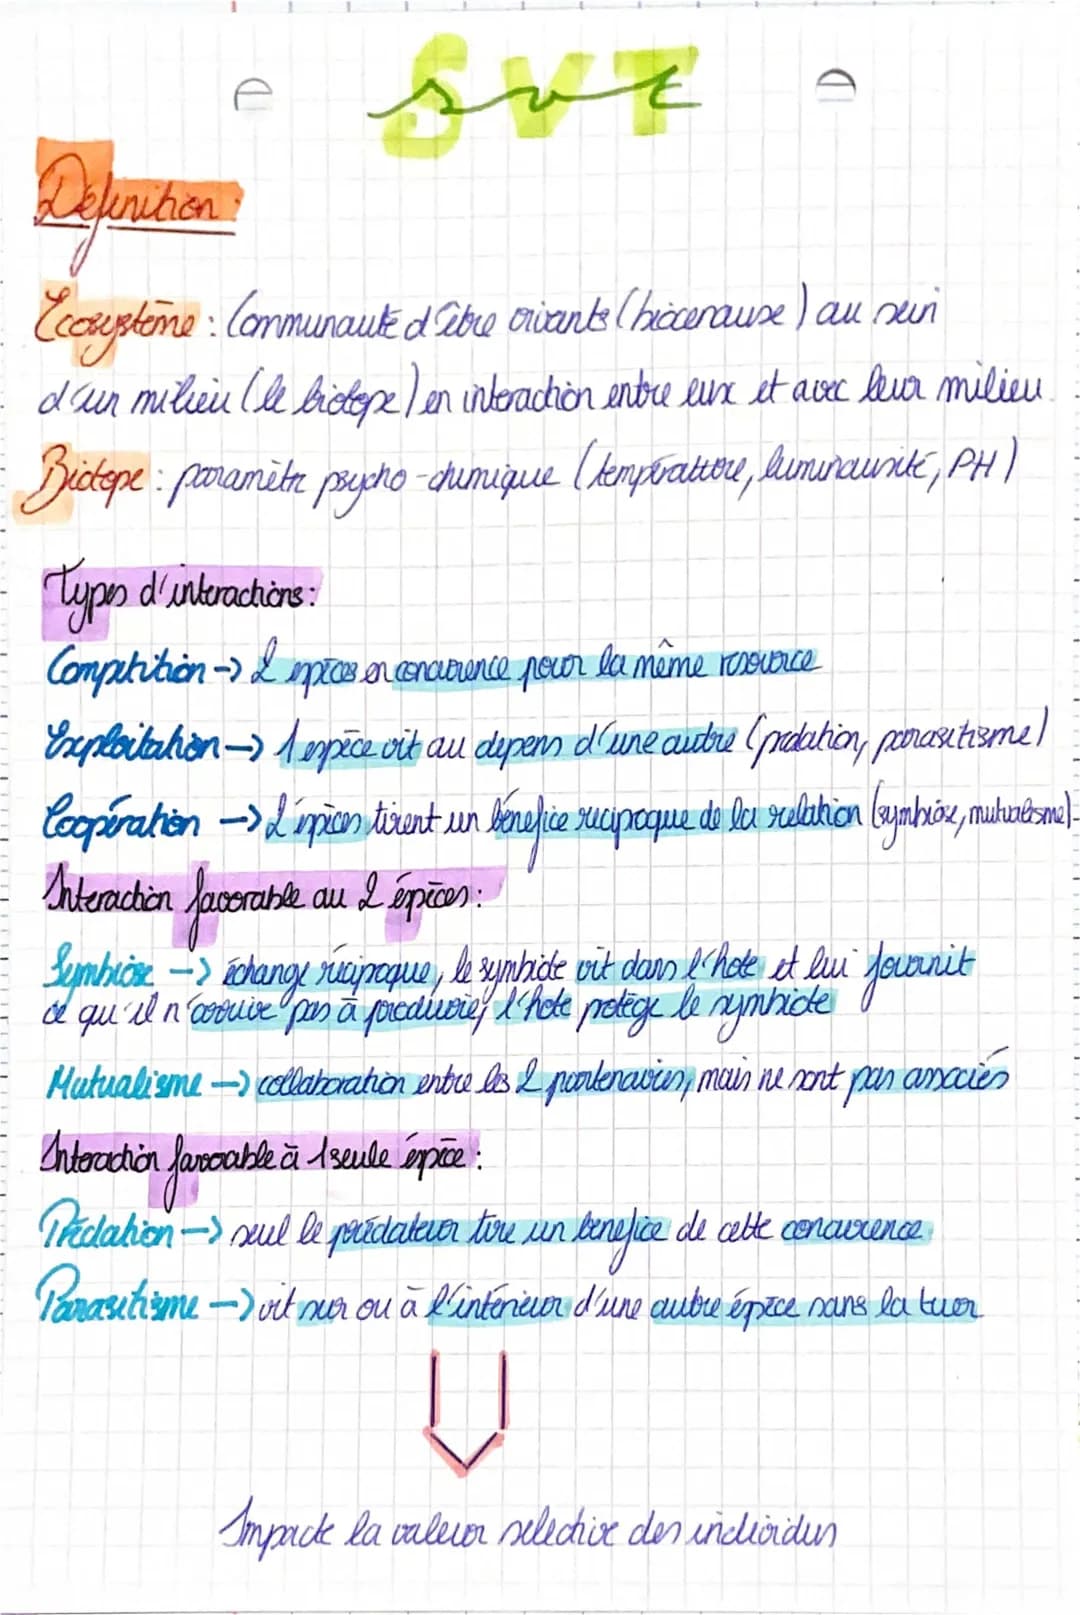 SVT
svt
Définition :
Ecosystème : Communauté d'être vivants (biocenause) au sein
d'un milieu (le biotope) en interaction entre eux et avec leur milieu.
Biotope : paramètr psycho-chimique (température, luminausité, PH)
Types d'interactions :
Compétition -> 2 espèces en concurence pour la même ressource
Exploitation -> 1 espèce vit au depens d'une autre (prédation, parasitisme)
Coopération -> 2 épices tirent un bénéfice réciproque de la relation (symbiose, mutualisme).
Interaction favorable au 2 épèces :
Symbiose -> échange réciproque, le symbiote vit dans l'hote et lui fournit
ce qu'il n'arrive pas à produire, l'hote protège le symbiote
Mutualisme -> collaboration entre les 2 partenaires, mais ne sont pas associés
Interaction favorable à 1 seule épèce :
Prédation -> seul le prédateur tire un bénéfice de cette concurence.
Parasitisme -> vit sur ou à l'intérieur d'une autre épèce sans la tuer
Impacte la valeur sélective des individus